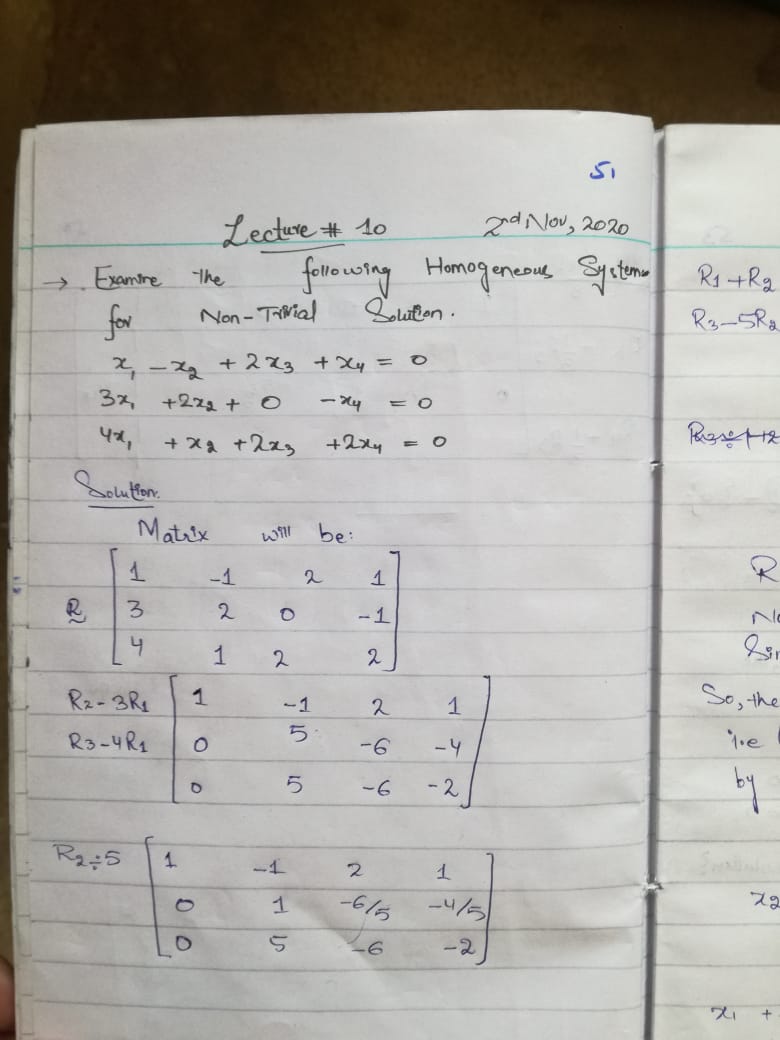 51
Lecture # 10 2nd Nov, 2020
→ Examine the following Homogeneous System
for Non-Trivial Solution.
x₁ - x₂ + 2x₃ + x₄ = 0
3x₁ +2x₂ + 0 -x₄ = 0
4x₁ + x₂ +2x₃ +2x₄ = 0
Solution.
Matrix will be:
1 -1 2 1
R 3 2 0 -1
4 1 2 2
R2-3R1 1 -1 2 1
R3-4R1 0 5 -6 -4
0 5 -6 -2
R2÷5 1 -1 2 1
0 1 -6/5 -4/5
0 5 -6 -2
R1+R2
R3-5R2
R
So, the
i.e
by
x2
x1 +